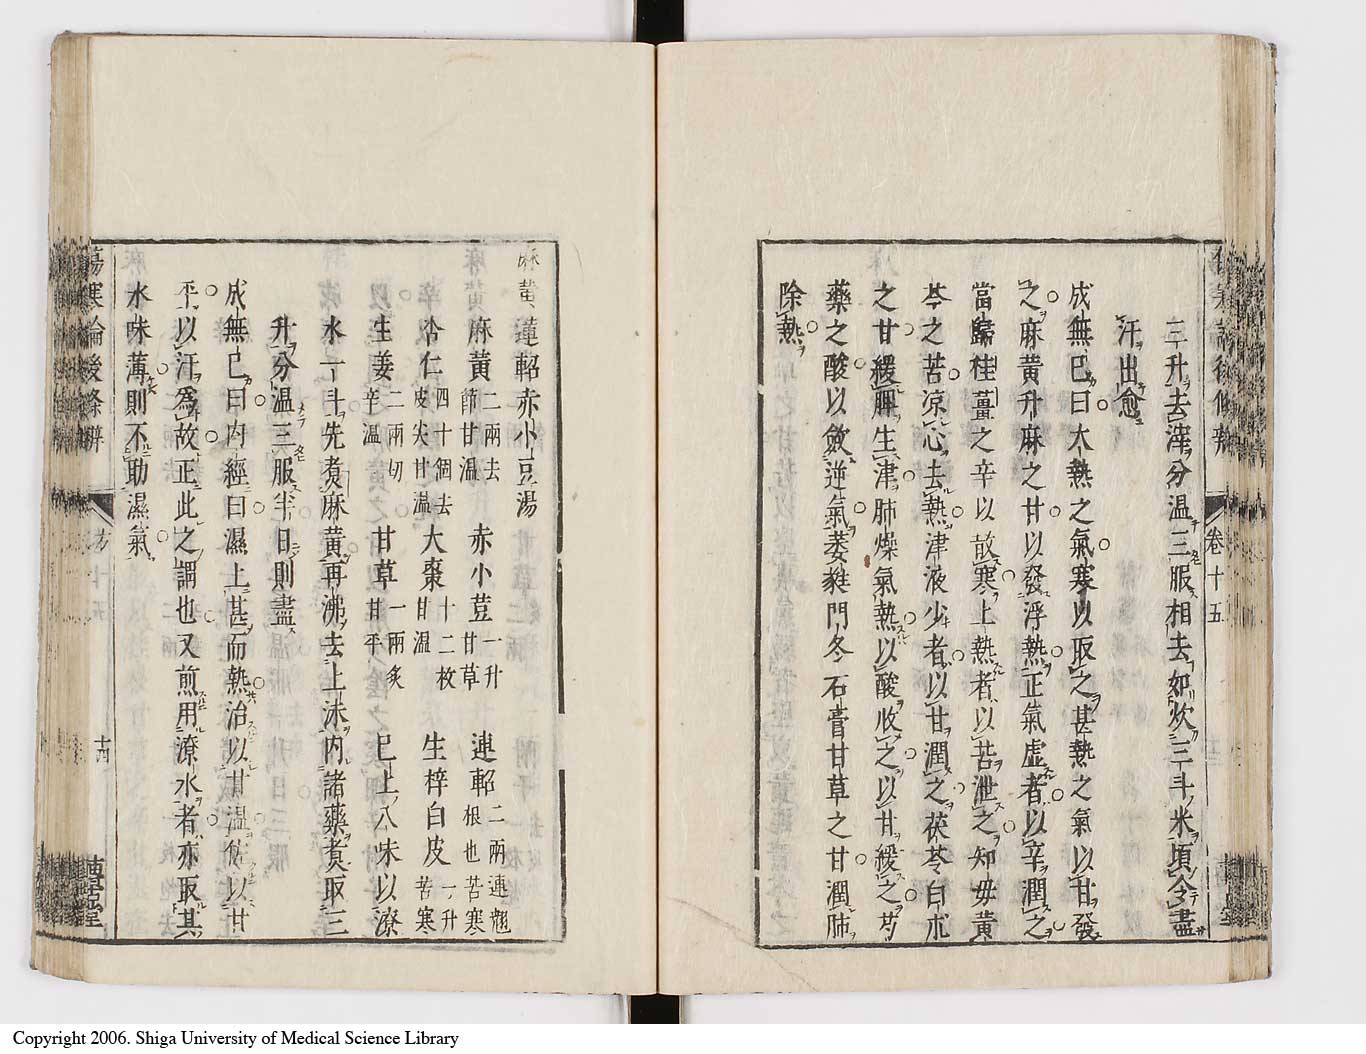 三升去滓分温三服相去如炊三斗米頃令盡
汗出愈
成無已曰大熱之氣寒以取之甚熱之氣以甘發
之麻黄升麻之甘以發浮熱正氣虚者以辛潤之
當歸桂薑之辛以散寒上熱者以苦泄之知毋黄
芩之苦凉心去熱津液少者以甘潤之茯苓白朮
之甘緩脾生津肺燥氣熱以酸收之以甘緩之芍
藥之酸以斂逆氣葳蕤門冬石膏甘草之甘潤肺
除熱
卷十五
麻黄連軺赤小豆湯
麻黄二兩去節甘温 赤小荳一升甘草 連軺二兩連翹根也苦寒
杏仁四十個去皮尖甘温 大棗十二枚甘温 生梓白皮一升苦寒
生姜二兩切辛温 甘草一兩炙甘平 已上八味以潦
水一斗先煑麻黄再沸去上沫内諸藥煑取三
升分温三服半日則盡
成無已曰内經曰濕上甚而熱治以甘温佐以甘
平以汗為故正此之謂也又煎用潦水者亦取其
水味薄則不助濕氣
傷寒論後條辨
十四
Copyright 2006. Shiga University of Medical Science Library